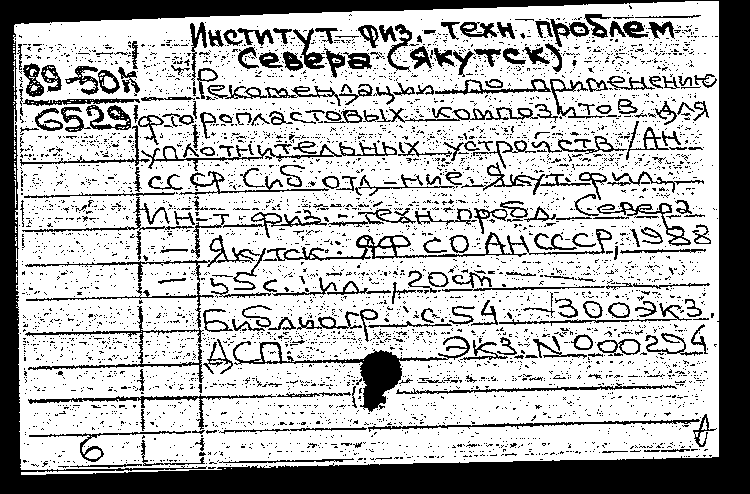 Институт физ.-техн. проблем
Севера (Якутск).
89-50к
Рекомендации по применению
6529 фторопластовых композитов для
уплотнительных устройств /АН
СССР. Сиб. отд-ние. Якут. фил.,
Ин-т физ.-техн. пробл. Севера
. — Якутск: ЯФ СО АН СССР, 1988
. — 55 с.: ил., 20 см.
Библиогр.: с. 54. — 300 экз.
ДСП. экз. N 000294
6